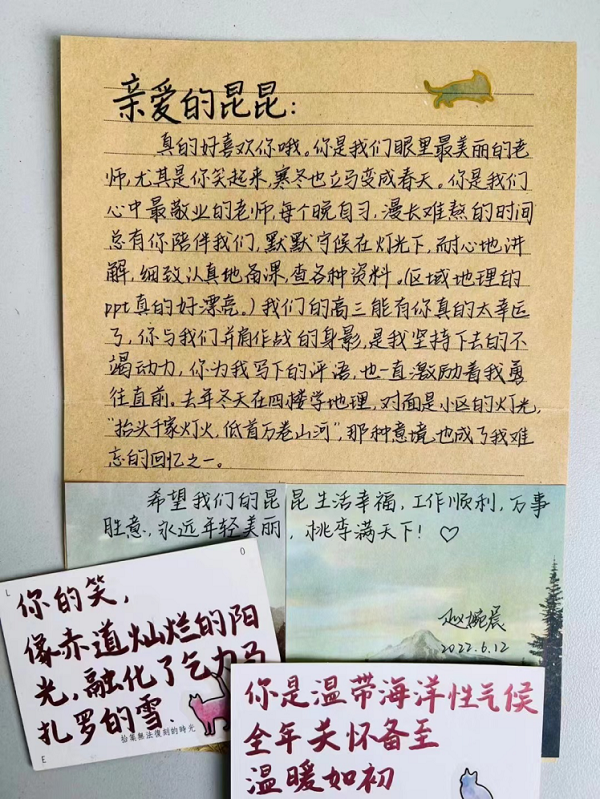 亲爱的昆昆：
真的好喜欢你哦。你是我们眼里最美丽的老
师，尤其是你笑起来，寒冬也立马变成春天。你是我们
心中最敬业的老师，每个晚自习，漫长难熬的时间
总有你陪伴我们，默默守候在灯光下，耐心地讲
解，细致认真地备课，查各种资料。(区域地理的
ppt真的好漂亮。)我们的高三能有你真的太幸运
了，你与我们并肩作战的身影，是我坚持下去的不
竭动力，你为我写下的评语，也一直激励着我勇
往直前。去年冬天在四楼学地理，对面是小区的灯光，
“抬头千家灯火，低首万卷山河”那种意境也成了我难
忘的回忆之一。
希望我们的昆昆生活幸福，工作顺利，万事
胜意，永远年轻美丽，桃李满天下！♡
婉晨
2022.6.12
L O
你的笑，
像赤道灿烂的阳
光，融化了乞力马
扎罗的雪.
拾集無法復刻的時光
E
你是温带海洋性气候
全年关怀备至
温暖如初